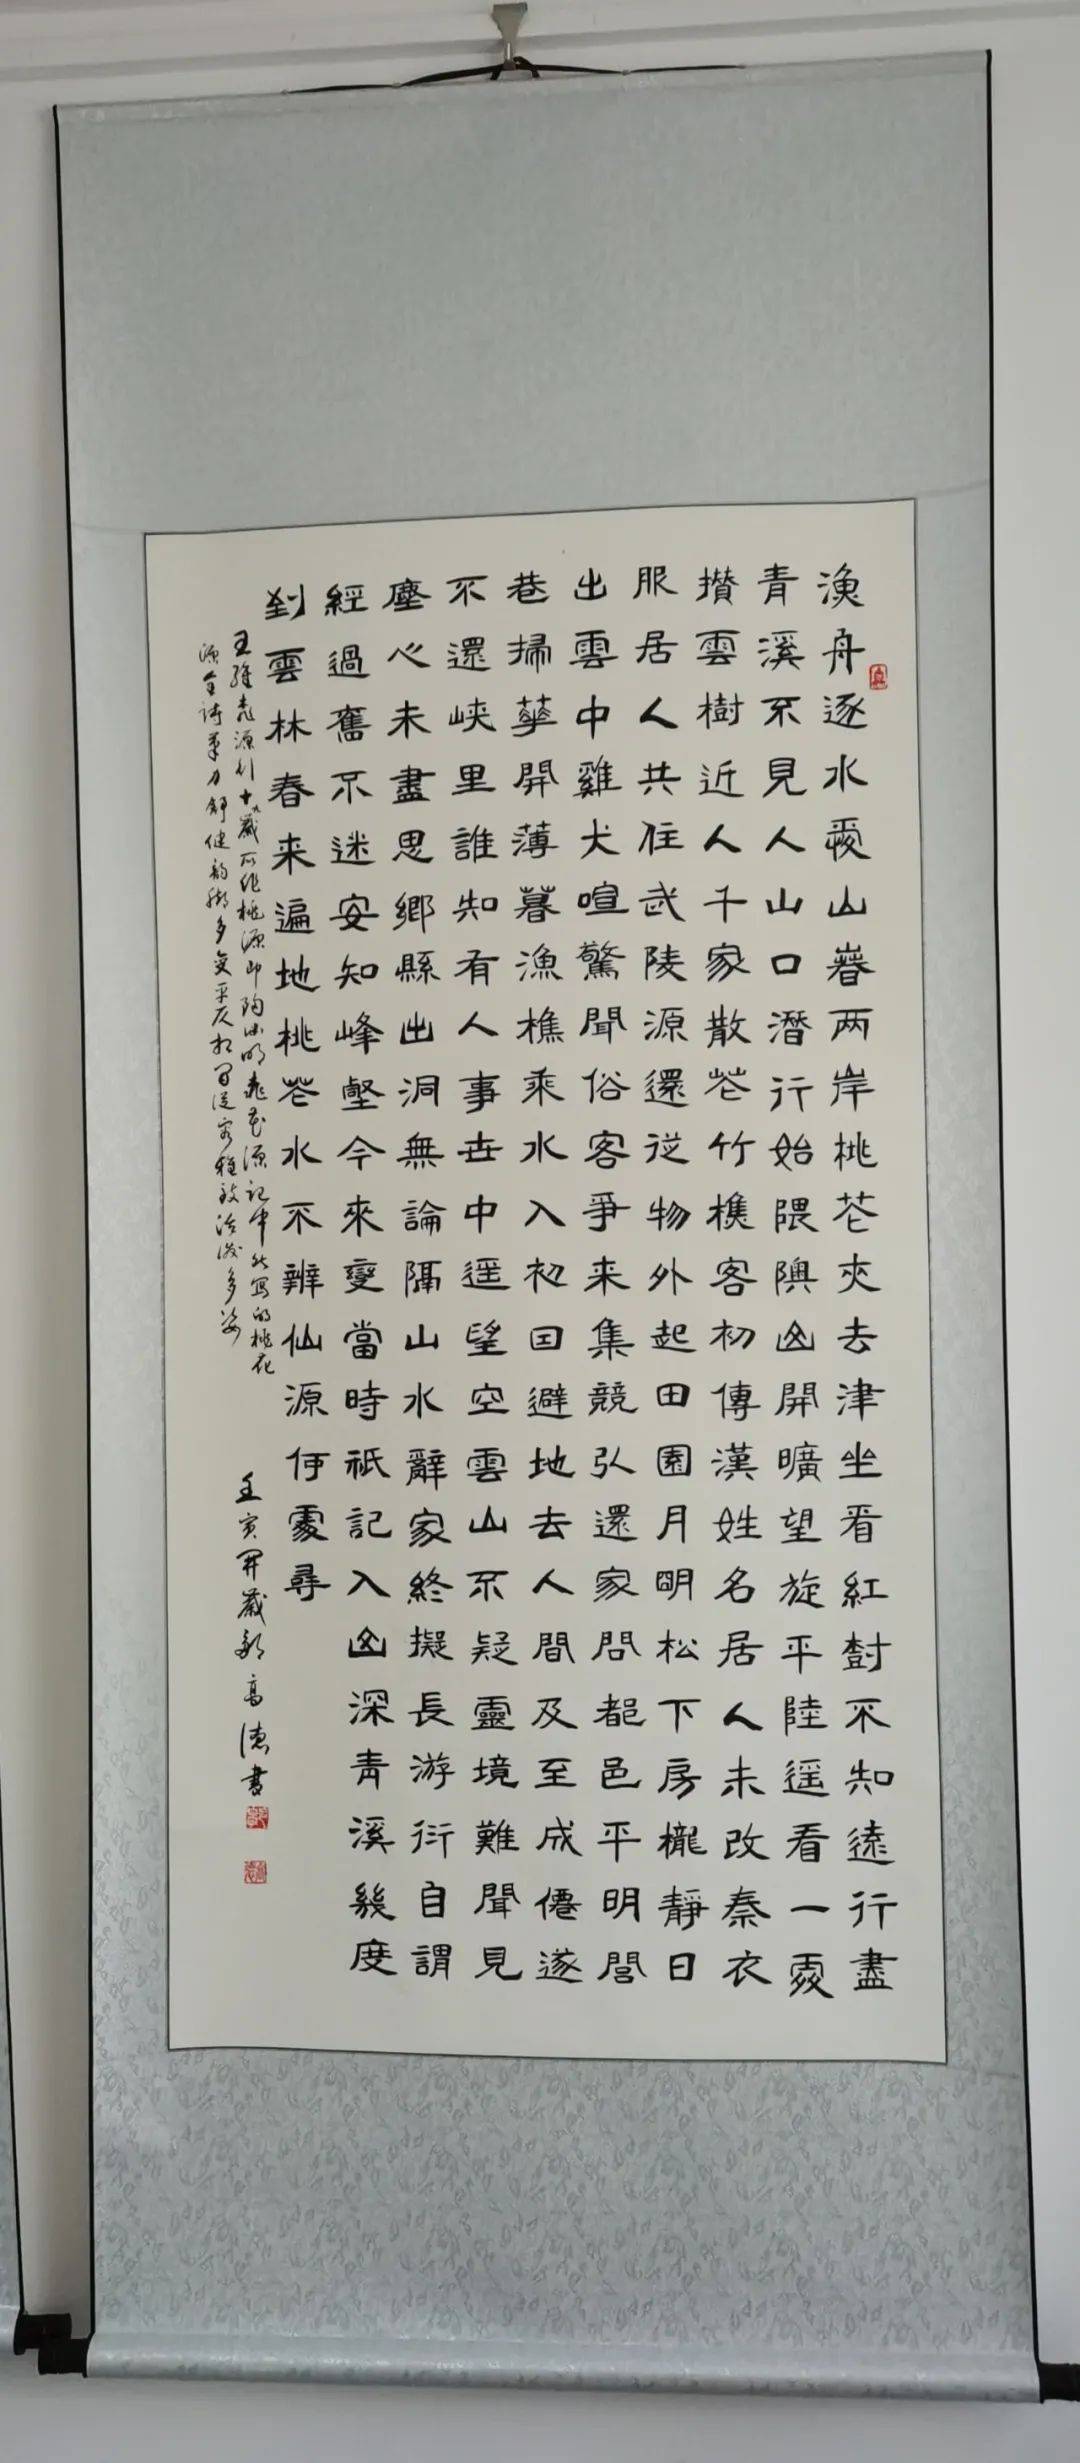 漁舟逐水愛山春两岸桃花夾去津坐看紅樹不知遠行盡
青溪不見人山口潛行始隈隩山開曠望旋平陸遥看一處
攅雲樹近人千家散花竹樵客初傳漢姓名居人未改秦衣
服居人共住武陵源還從物外起田園月明松下房櫳靜日
出雲中雞犬喧驚聞俗客爭来集競引還家問都邑平明閭
巷掃華開薄暮漁樵乘水入初因避地去人間及至成僊遂
不還峡里誰知有人事世中遥望空雲山不疑靈境難聞見
塵心未盡思鄉縣出洞無論隔山水辭家終擬長游衍自謂
經過舊不迷安知峰壑今來變當時祇記入山深青溪幾度
到雲林春来遍地桃花水不辨仙源何處尋
王維桃源行十九歲所作桃源即陶淵明桃花源記中所寫的桃花
源全詩筆力舒健韵脚多變平仄相間從容雅致活潑多姿
壬寅年歲高德書